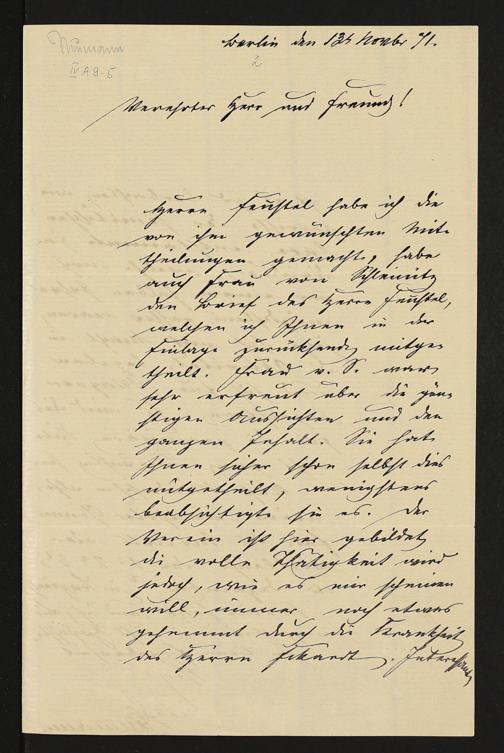 Neumann
IV A 9-5
Berlin den 13t Novbr 71.
2
Verehrter Herr und Freund!
Herrn Feustel habe ich die
von ihm gewünschten Mit-
theilungen gemacht, habe
auch Frau von Schleinitz
den Brief des Herrn Feustel,
welchen ich Ihnen in der
Einlage zurücksende, mitge-
theilt. Frau v. S. war
sehr erfreut über die gün-
stigen Aussichten und den
ganzen Inhalt. Sie hat
Ihnen sicher schon selbst dies
mitgetheilt, wenigstens
beabsichtigte sie es. Der
Verein ist hier gebildet,
die volle Thätigkeit wird
jedoch, wie es mir scheinen
will, immer noch etwas
gehemmt durch die Krankheit
des Herrn Eckardt.